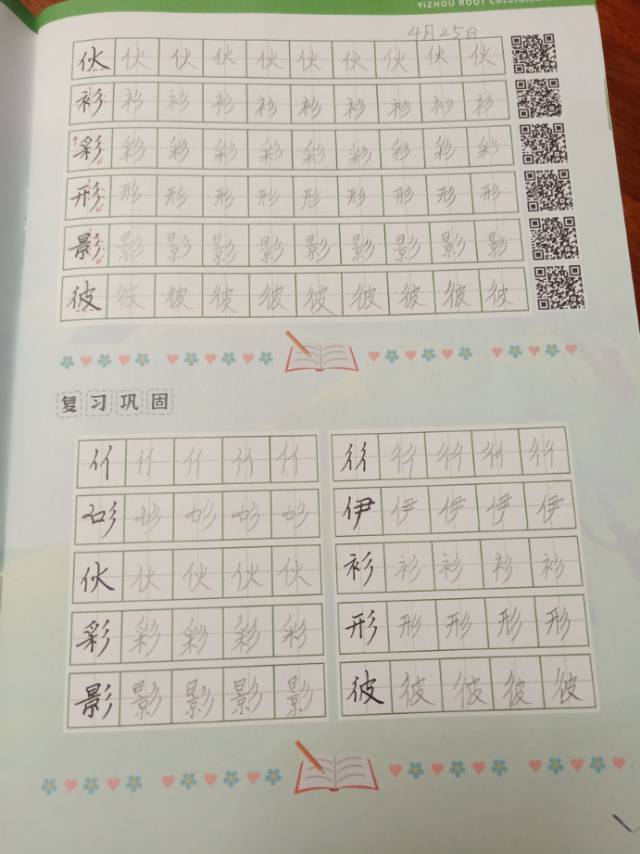 YIZHOU ROOT CALLIGRA
4月25日
伙 伙 伙 伙 伙 伙 伙 伙 伙 伙
衫 衫 衫 衫 衫 衫 衫 衫 衫 衫
彩 彩 彩 彩 彩 彩 彩 彩 彩 彩
形 形 形 形 形 形 形 形 形 形
影 影 影 影 影 影 影 影 影 影
彼 彼 彼 彼 彼 彼 彼 彼 彼 彼
复习巩固
伊 伊 伊 伊 伊
伙 伙 伙 伙 伙 衫 衫 衫 衫 衫
彩 彩 彩 彩 彩 形 形 形 形 形
影 影 影 影 影 彼 彼 彼 彼 彼